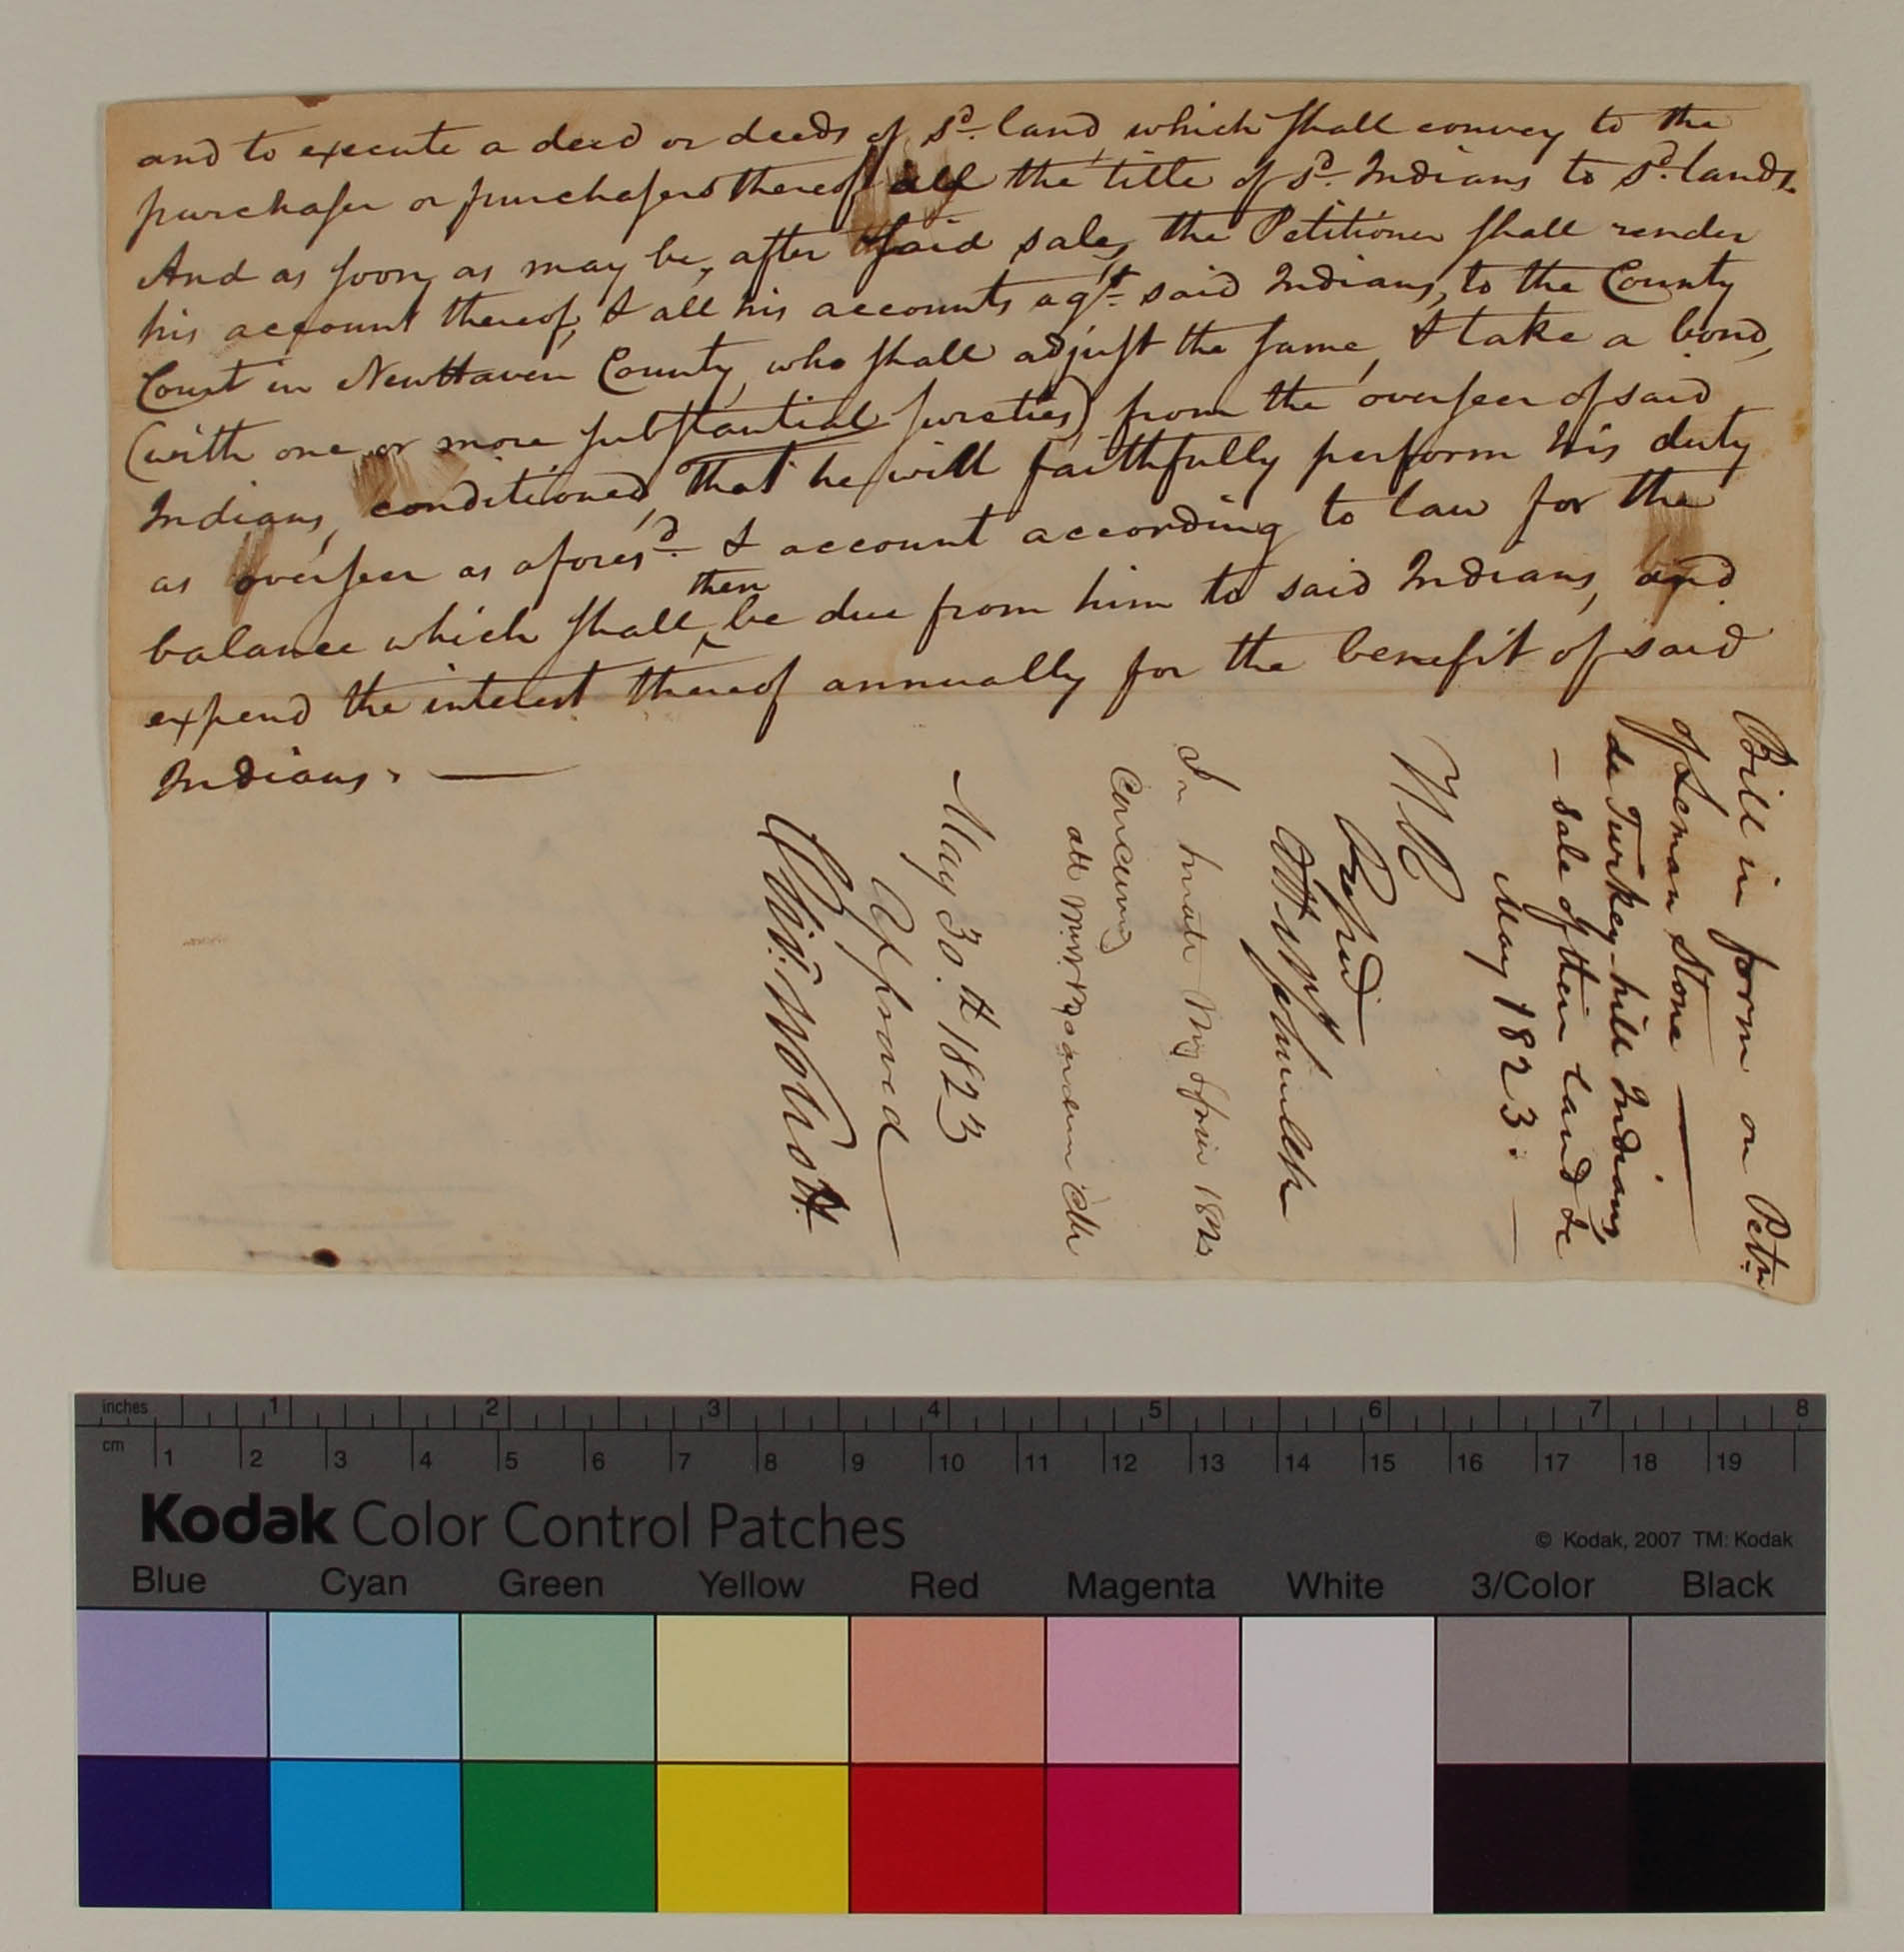 and to execute a deed or deeds of sd. land, which shall convey to the
purchaser or purchasers thereof all the title of sd. Indians to sd. lands.
And as soon as may be, after said sale, the Petitioner shall render
his account thereof, & all his accounts agst. said Indians, to the County
Court in New Haven County, who shall adjust the same, & take a bond,
(with one or more substantial sureties) from the overseer of said
Indians, conditioned, that he will faithfully perform his duty
as overseer as aforesd. & account according to law for the
then
balance which shall ^ be due from him to said Indians, and
expend the interest thereof annually for the benefit of said
Indians. —
Bill in form on Petn.
of Leman Stone —
de Turkey-hill Indians,
— sale of their land &c
May 1823. —
HR
Passed
In
Concurring
May 30.th 1823
Approved
Oliv: Wolcott
inches 1 2 3 4 5 6 7 8
cm 1 2 3 4 5 6 7 8 9 10 11 12 13 14 15 16 17 18 19
Kodak Color Control Patches
© Kodak, 2007 TM: Kodak
Blue Cyan Green Yellow Red Magenta White 3/Color Black